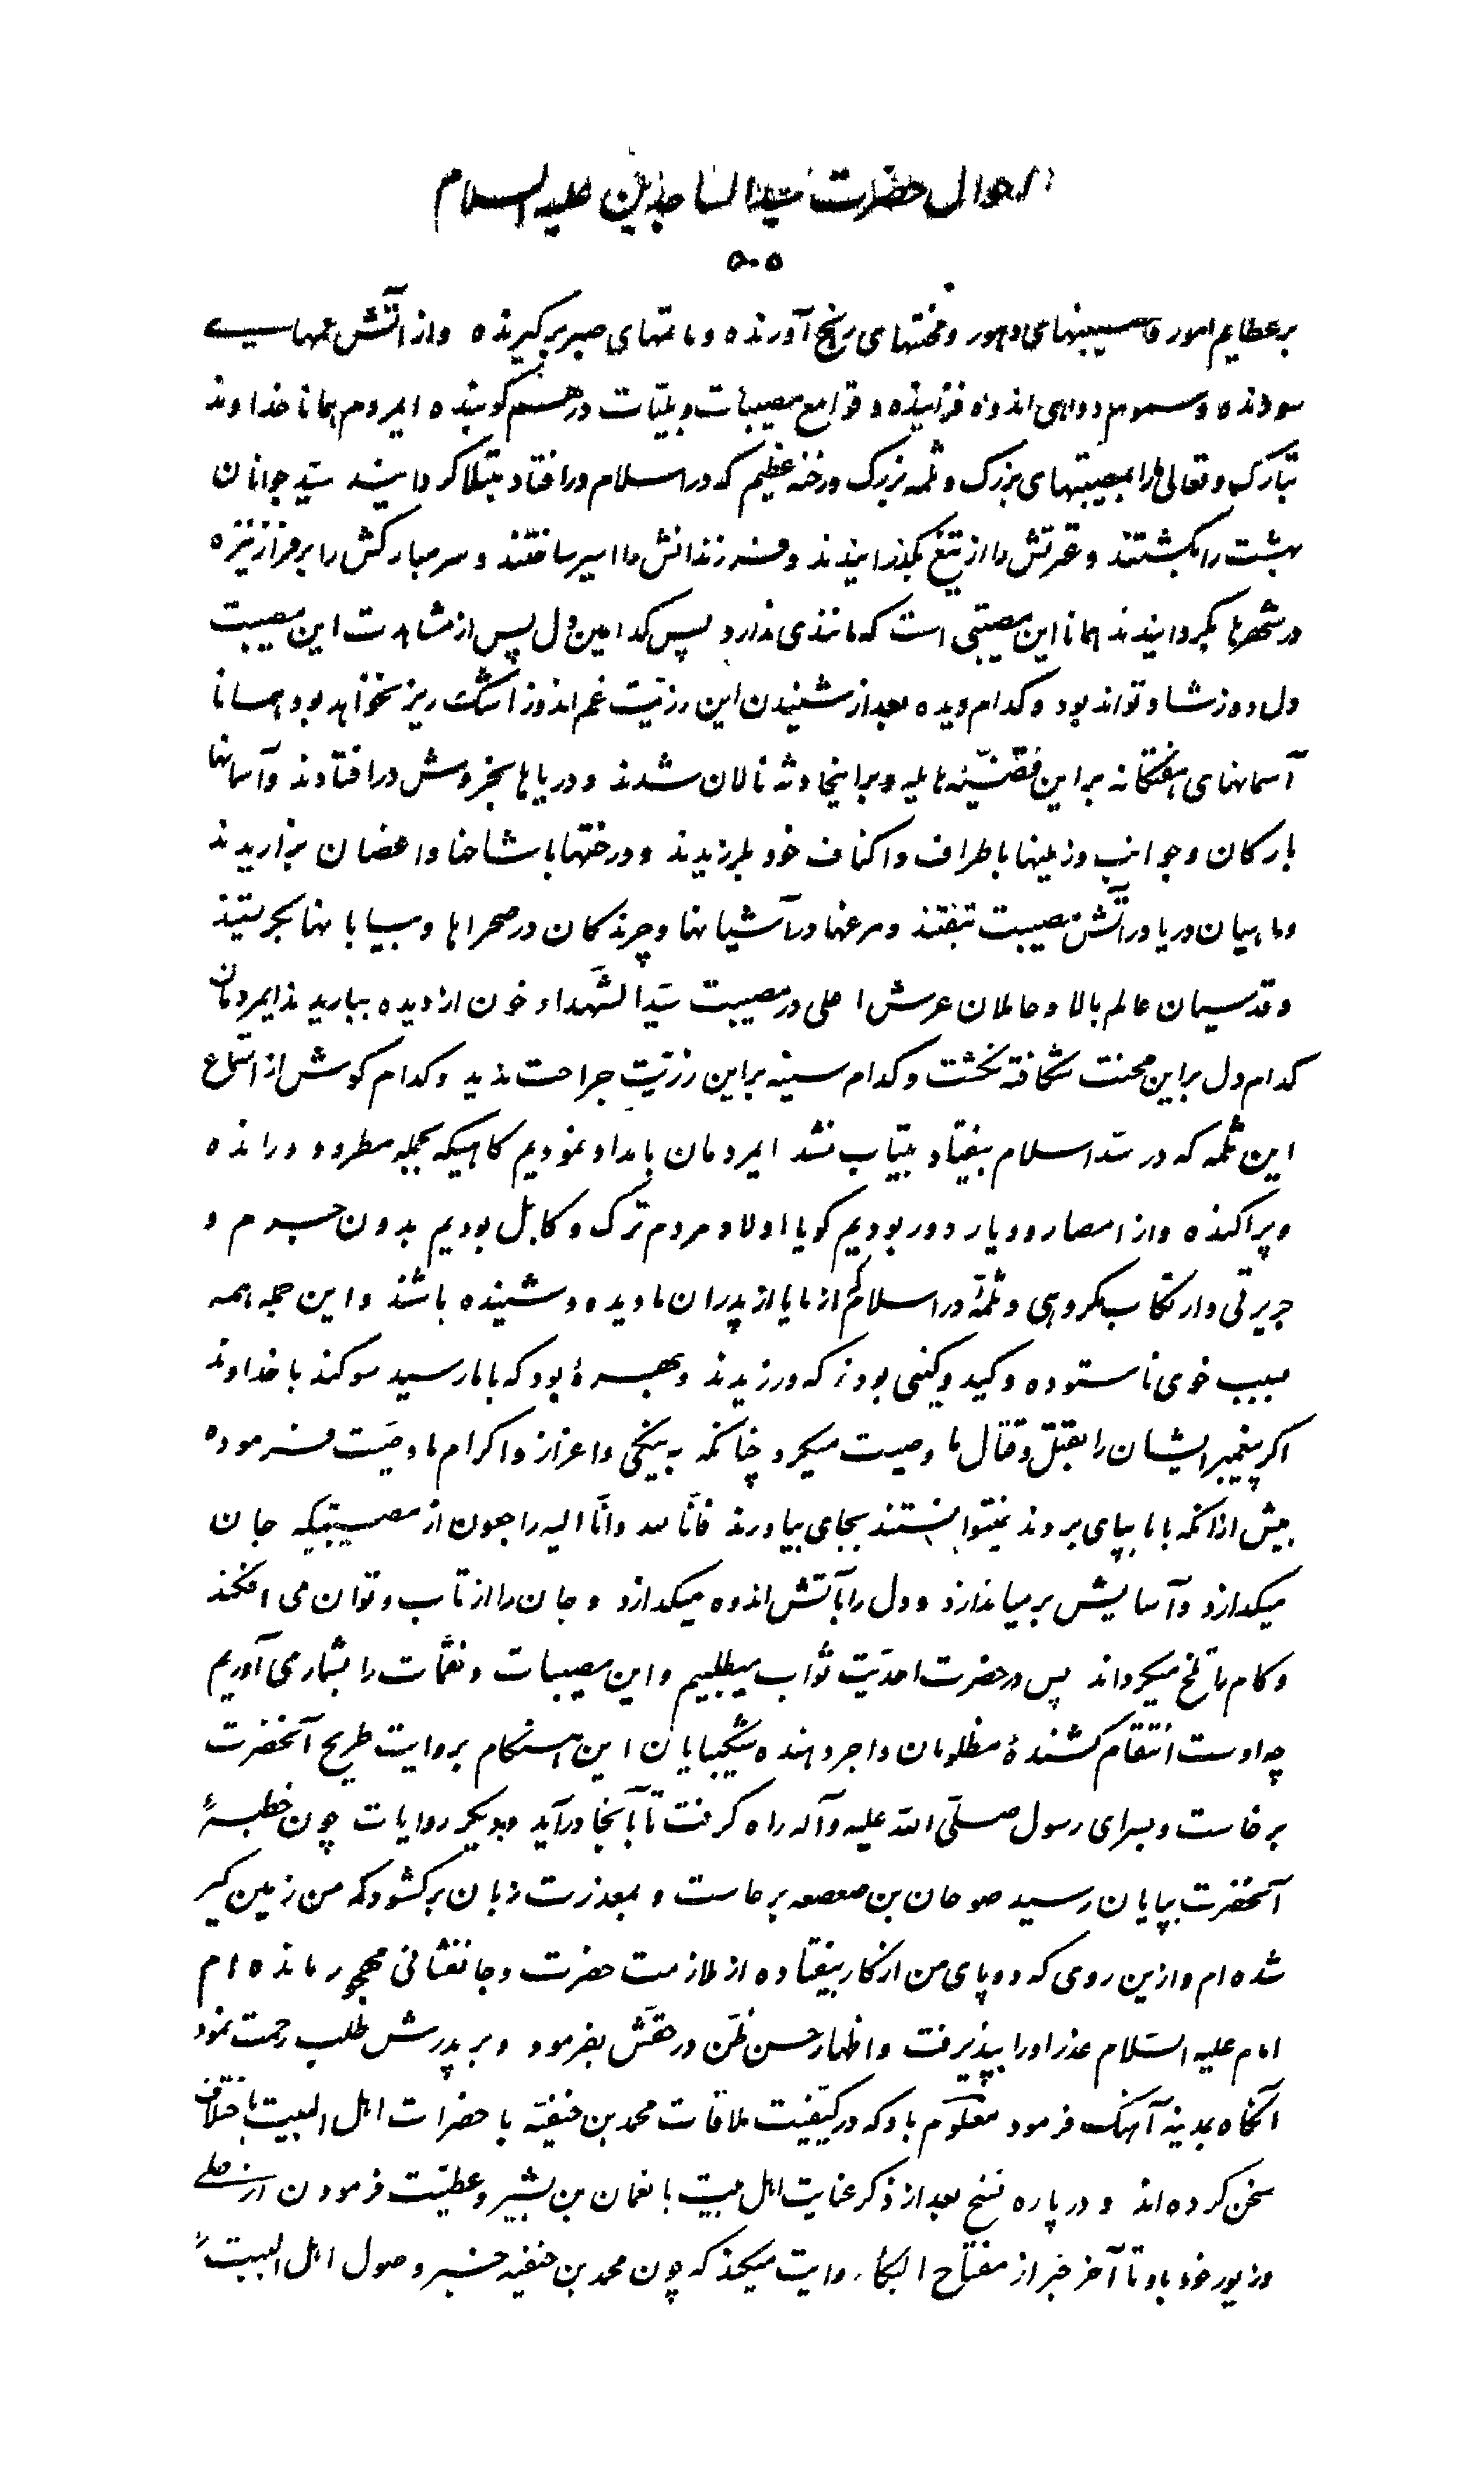 احوال حضرت سید الساجدین علیه السلام
۵۰۵
بر عظایم امور و مصیبتهای دهور و محنتهای رنج آورنده و ماتمهای صبر برگیرنده و از آتش غمهای
سوزنده و سموم دواهی اندوه فزاینده و قوامع مصیبات و بلیات در هم کوبنده ایمردم همانا خداوند
تبارک و تعالی ما را بمصیبتهای بزرک و ثلمه بزرک و رخنه عظیم که در اسلام در افتاد مبتلا گردانید سید جوانان
بهشت را بکشتند و عترتش را از تیغ بگذرانیدند و فرزندانش را اسیر ساختند و سر مبارکش را بر فراز نیزه
در شهرها بگردانیدند همانا این مصیبتی است که مانندی ندارد پس کدامین دل پس از مشاهدت این مصیبت
دل دوز شاد تواند بود و کدام دیده بعد از شنیدن این رزیت غم اندوز اشک ریز نخواهد بود همانا
آسمانهای هفتگانه بر این قضیه هایله و بر اینحادثه نالان شدند و دریاها بخروش در افتادند و آسمانها
بارکان و جوانب و زمینها باطراف و اکناف خود بلرزیدند و درختها با شاخها و اغصان بزاریدند
و ماهیان دریا در آتش مصیبت بتفتند و مرغها در آشیانها و چرندکان در صحراها و بیابانها بگریستند
و قدسیان عالم بالا و حاملان عرش اعلی در مصیبت سید الشهداء خون از دیده بباریدند ایمردمان
کدام دل بر این محنت شکافته نگشت و کدام سینه بر این رزیت جراحت ندید و کدام گوش از استماع
این ثلمه که در سد اسلام بیفتاد بیتاب نشد ایمردمان بامداد نمودیم گاهیکه بجمله مطرود و رانده
و پراکنده و از امصار و دیار دور بودیم گویا اولاد مردم ترک و کابل بودیم بدون جرم و
جریرتی و ارتکاب مکروهی و ثلمهٔ در اسلام که از ما یا از پدران ما دیده و شنیده باشند و این جمله همه
بسبب خوی ناستوده و کید و کینی بود که ورزیدند و بهرهٔ بود که با ما رسید سوگند با خداوند
اگر پیغمبر ایشان را بقتل و قتال ما وصیت میکرد چنانکه به نیکی و اعزاز و اکرام ما وصیت فرموده
بیش از آنکه با ما بپای بردند نمیتوانستند بجای بیاورند فانا لله و انا الیه راجعون از مصیبتیکه جان
میگدازد و آسایش بر میاندازد و دل را بآتش اندوه میگدازد و جان را از تاب و توان می افکند
و کام ما تلخ میگرداند پس در حضرت احدیت ثواب میطلبیم و این مصیبات و نقمات را بشمار می آوریم
چه اوست انتقام کشندهٔ مظلومان و اجر دهنده شکیبایان این هنگام بروایت طریح آنحضرت
برخاست و بسرای رسول صلی الله علیه و آله راه گرفت تا بآنجا درآید و بدیگر روایات چون خطبهٔ
آنحضرت بپایان رسید صوحان بن صعصعه برخاست و بمعذرت زبان برگشود که من زمین گیر
شده ام و ازین روی که دو پای من از کار بیفتاده از ملازمت حضرت و جانفشانی مهجور مانده ام
امام علیه السلام عذر او را بپذیرفت و اظهار حسن ظن در حقش بفرمود و بر پدرش طلب رحمت نمود
آنگاه بمدینه آهنگ فرمود معلوم باد که در کیفیت ملاقات محمد بن حنفیه با حضرات اهل البیت باختلاف
سخن کرده اند و در پاره نسخ بعد از ذکر عنایت اهل بیت با نعمان بن بشیر و عطیت فرمودن از حلی
و زیور خود باو تا آخر خبر از مفتاح البکاء روایت میکند که چون محمد بن حنفیه خبر وصول اهل البیت